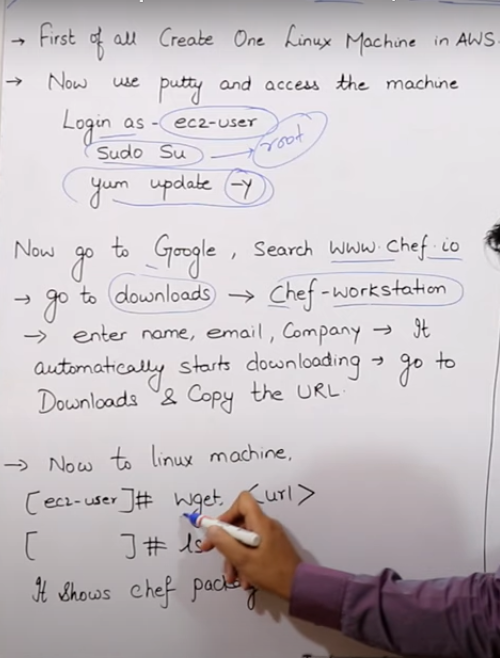 → First of all Create One Linux Machine in AWS.
→ Now use putty and access the machine
Login as - ec2-user
Sudo Su → root
yum update -y
Now go to Google, Search www.chef.io
→ go to downloads → Chef-workstation
→ enter name, email, Company → It
automatically starts downloading → go to
Downloads & Copy the URL.
→ Now to linux machine,
[ec2-user]# wget <url>
[ ]# ls
It Shows chef